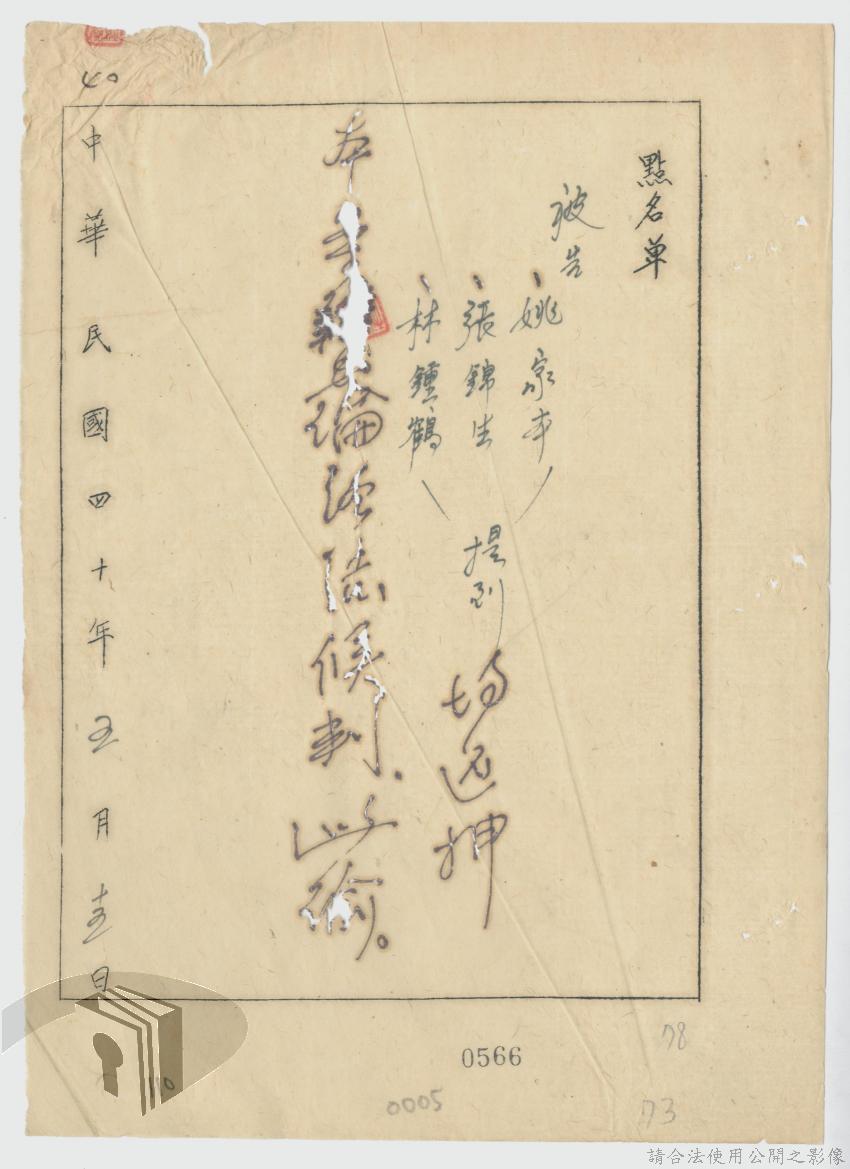 點名单
被告
姚家本
張錦生
林鍾鶴
提到
場還押
本案辯論終結候判、此諭。
40
中華民國四十年五月十五日
0566
78
0005
73
110
請合法使用公開之影像